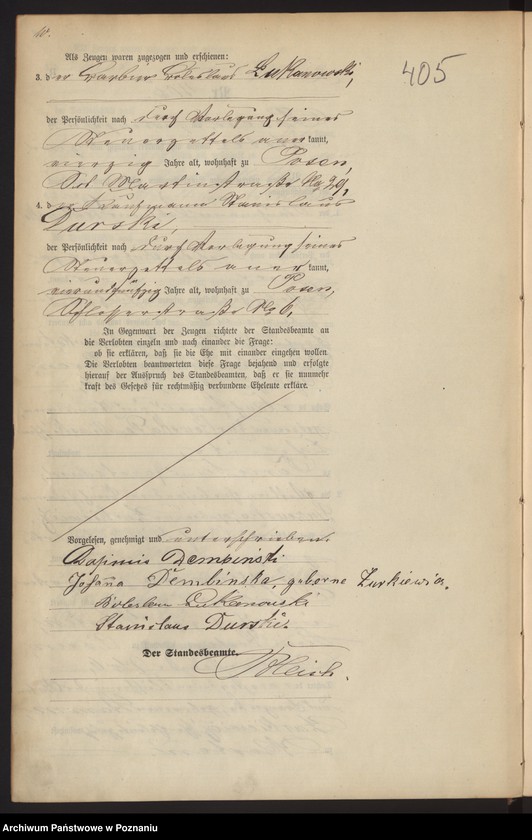 405
Als Zeugen waren zugezogen und erschienen:
3. der Gerber Boleslaus Lukanowski,
der Persönlichkeit nach durch Vorlegung seines
Steuerzettels anerkannt,
vierzig Jahre alt, wohnhaft zu Posen,
Sct Martinstraße No 29,
4. der Kaufmann Stanislaus
Durski,
der Persönlichkeit nach durch Vorlegung seines
Steuerzettels anerkannt,
vierundfünfzig Jahre alt, wohnhaft zu Posen,
Schlosserstraße No 6,
In Gegenwart der Zeugen richtete der Standesbeamte an
die Verlobten einzeln und nach einander die Frage:
ob sie erklären, daß sie die Ehe mit einander eingehen wollen.
Die Verlobten beantworteten diese Frage bejahend und erfolgte
hierauf der Ausspruch des Standesbeamten, daß er sie nunmehr
kraft des Gesetzes für rechtmäßig verbundene Eheleute erkläre.
Vorgelesen, genehmigt und unterschrieben.
Dembinski
Johana Dembinska, geborne Zurkiewicz.
Boleslaus Lukanowski
Stanislaus Durski.
Der Standesbeamte.
Archiwum Państwowe w Poznaniu